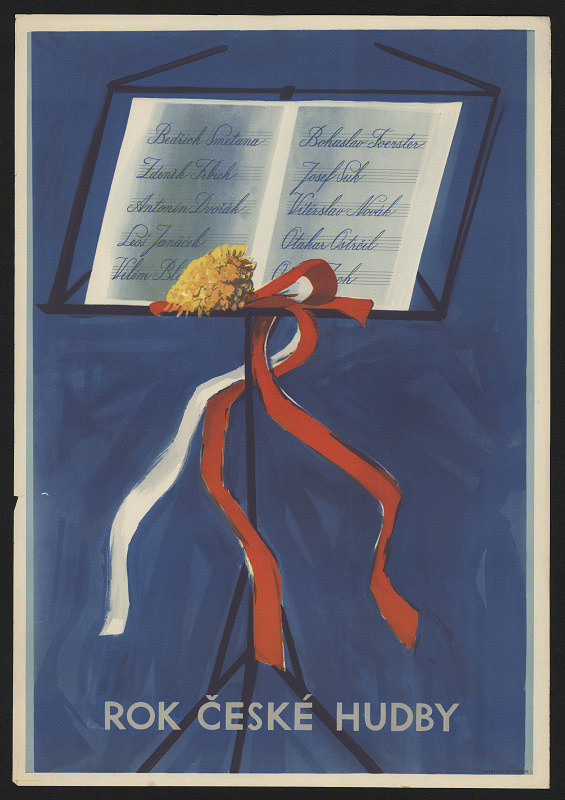 Bedřich Smetana
Zdeněk Fibich
Antonín Dvořák
Leoš Janáček
Vilém
Bohuslav Foerster
Josef Suk
Vítězslav Novák
Otakar Ostrčil
ROK ČESKÉ HUDBY